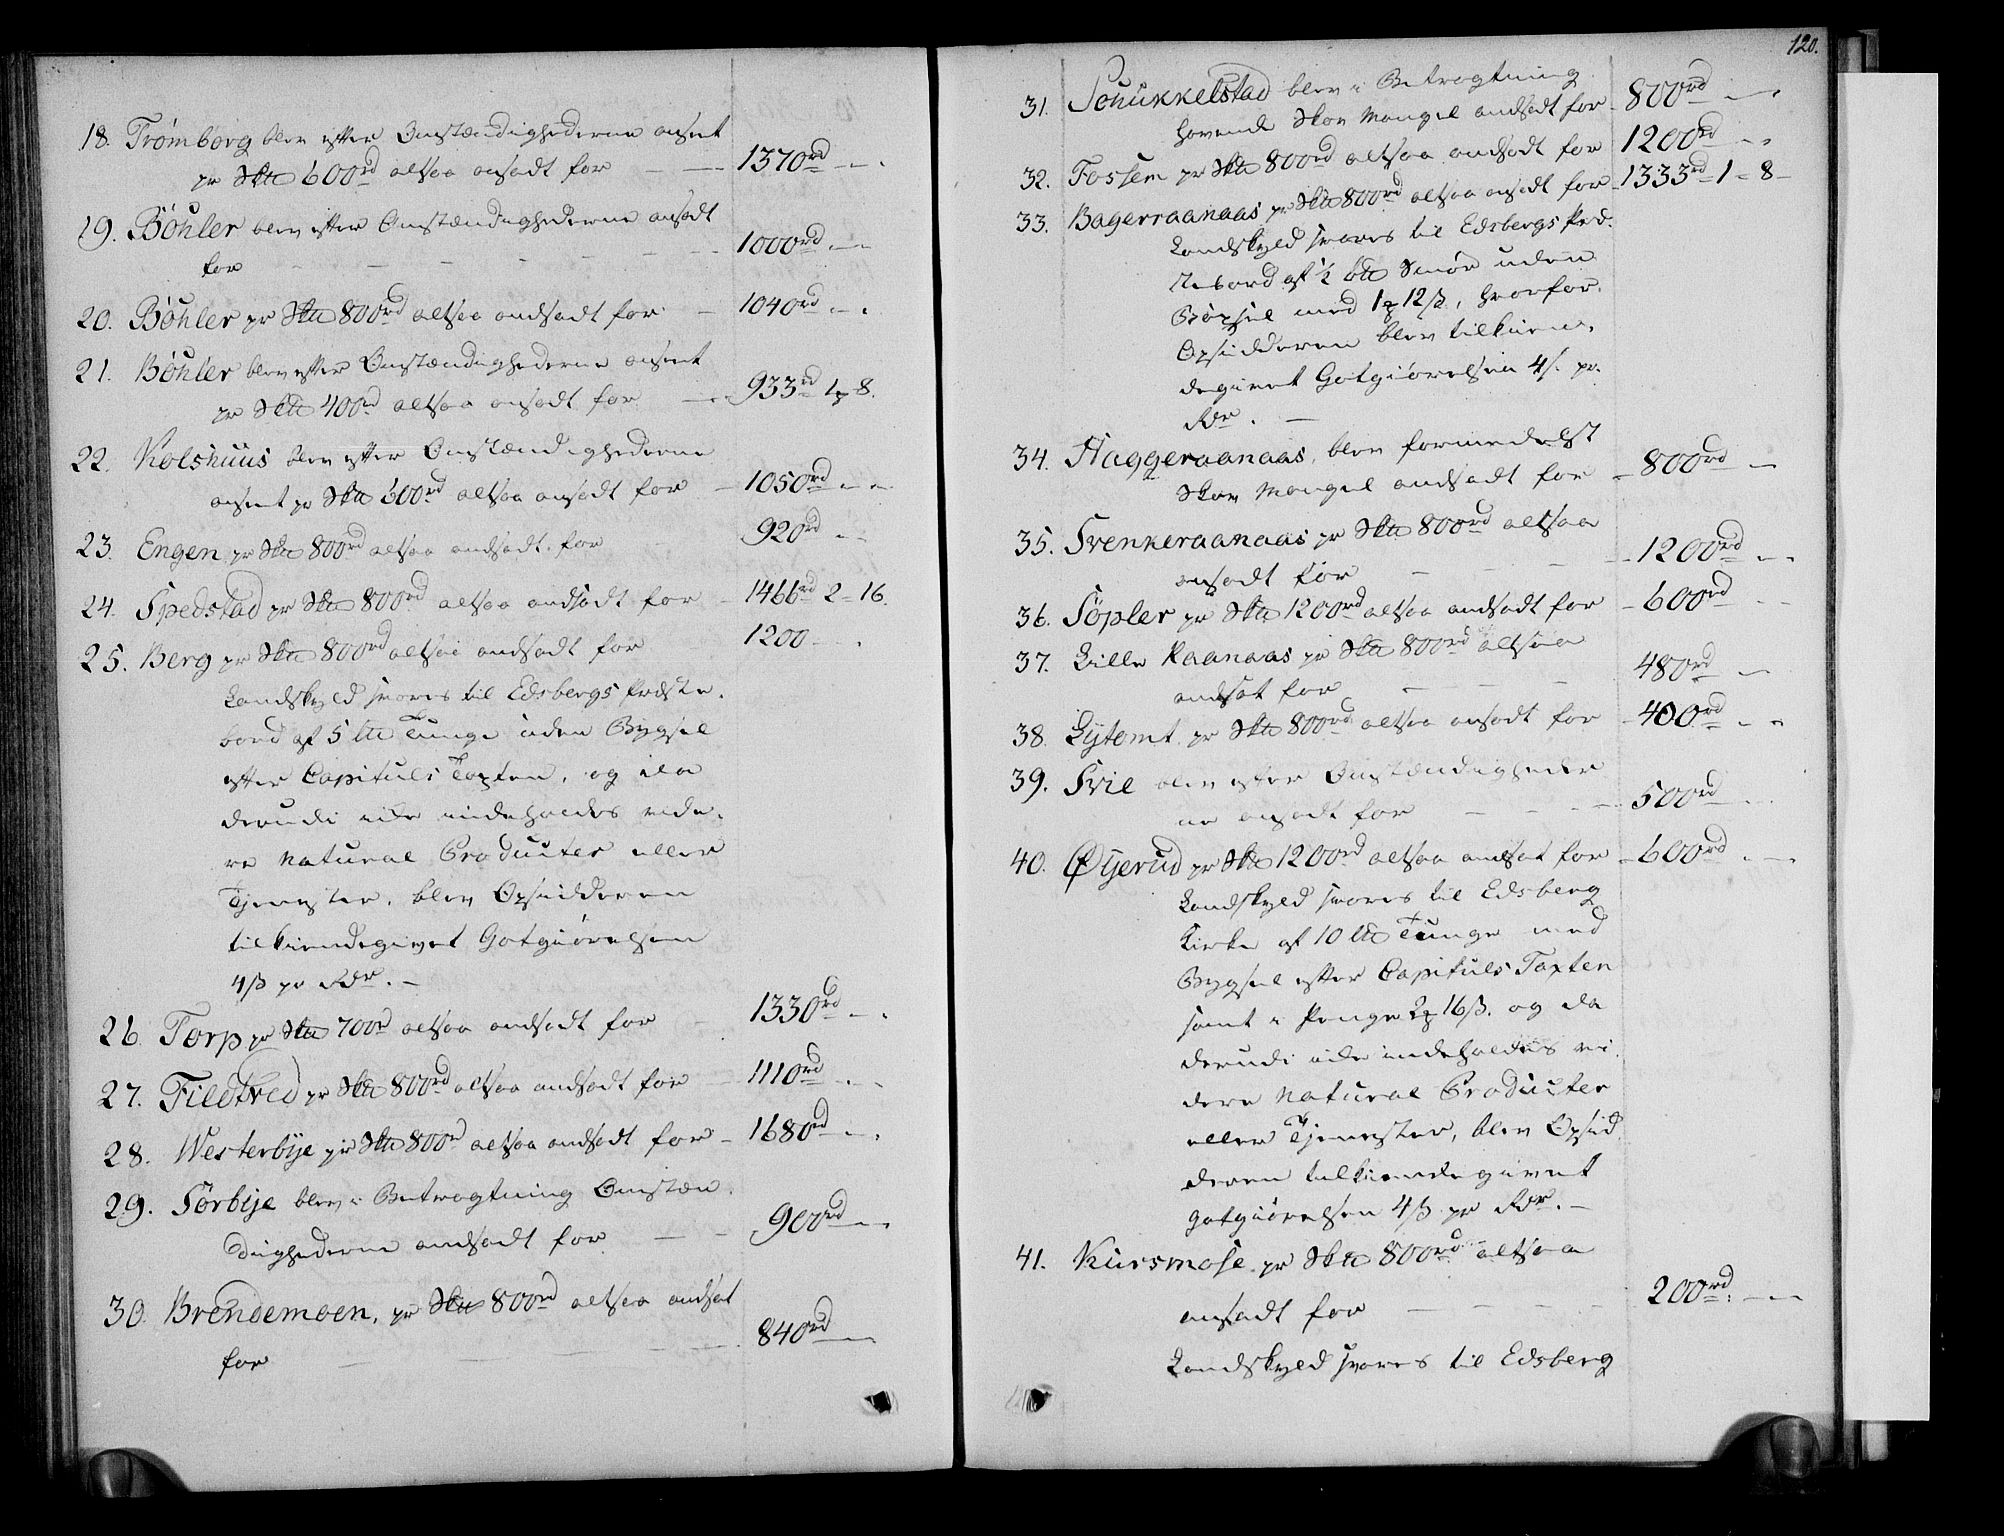 18. Trømborg blev efter Omstændighederne anseet
pr Sktt 600rd altsaa ansadt for — — 1370rd — .
19. Böhler blev efter Omstændighederne ansadt
for - - - - - - - 1000rd —
20. Böhler pr Sktt 800rd altsaa andsadt for - 1040rd - .
21. Böhler blev efter Omstændighederne anseet
pr Sktt 400rd altsaa ansadt for — 933rd 1 8.
22. Kolshuus blev efter Omstændighederne
anseet pr Sktt 600rd altsaa ansadt for - 1050rd - -
23. Engen pr Sktt 800rd altsaa andsadt for 920rd - -
24. Spedstad pr Sktt 800rd altsaa andsadt for - 1466rd 2 - 16.
25. Berg pr Sktt 800rd altsaa andsadt for 1200 - .
Landskyld svares til Edsbergs Præste-
bord af 5 Ltt Tunge uden Bygsel
efter Capituls Taxten, og da
derudi ei indeholdes vide-
re Natural Producter eller
Tjenester, blev Opsidderen
tilkiendegivet Gotgiørelsen
4/3 pr Rdr. -
26. Torp pr Sktt 700rd altsaa andsadt for - 1330rd - .
27. Fildtved pr Sktt 800rd altsaa andsadt for - 1110rd - -
28. Westerbÿe pr Sktt 800rd altsaa andsadt for - 1680rd - .
29. Sørbÿe blev i Betragtning Omstæn-
dighederne andsadt for — - 900rd - -
30. Brendemoen, pr Sktt 800rd altsaa andsat
for — — — 840rd —
120.
31. Schukkelstad blev i Betragtning
havende Skov Mangel andsadt for - 800rd - -
32. Fossem pr Sktt 800rd altsaa andsadt for 1200rd - -
33. Bagerraanaas pr Sktt 800rd altsaa ansadt for - 1333rd - 1 - 8 -
Landskyld svares til Edsbergs Præ-
stebord af ½ Smør uden
Bÿxsel med 1 12/3, hvorfor
Opsidderen blev tilkien-
degivet Gotgiørelsen 4/. pr.
Rdr. —
34. Haggeraanaas, blev formedelst
Skov Mangel andsadt for - 800rd —
35. Svenkeraanaas pr Sktt 800rd altsaa
ansadt for - - - - 1200rd - -
36. Söpler pr Sktt 1200rd altsaa andsadt for - 600rd - -
37. Lille Raanaas pr Sktt 800rd altsaa
andsat for — — - 480rd —
38. Lytomt pr Sktt 800rd altsaa ansadt for - 400rd - -
39. Svie blev efter Omstændigheder
ne ansadt for - - - - 500rd - -
40. Øÿerud pr Sktt 1200rd altsaa andsat for - 600rd - —
Landskyld svares til Edsberg
Kirke af 10 Ltt Tunge med
Bygsel efter Capituls Taxten
samt i Penge 2 16/3. og da
derudi ei indeholdes vi-
dere Natural Producter
eller Tjenester, blev Opsid-
deren tilkiendegivet
Gotgiørelsen 4/3 pr Rdr. -
41. Kursmose pr Sktt 800rd altsaa
ansadt for — - - - 200rd. - -
Landskyld svares til Edsberg